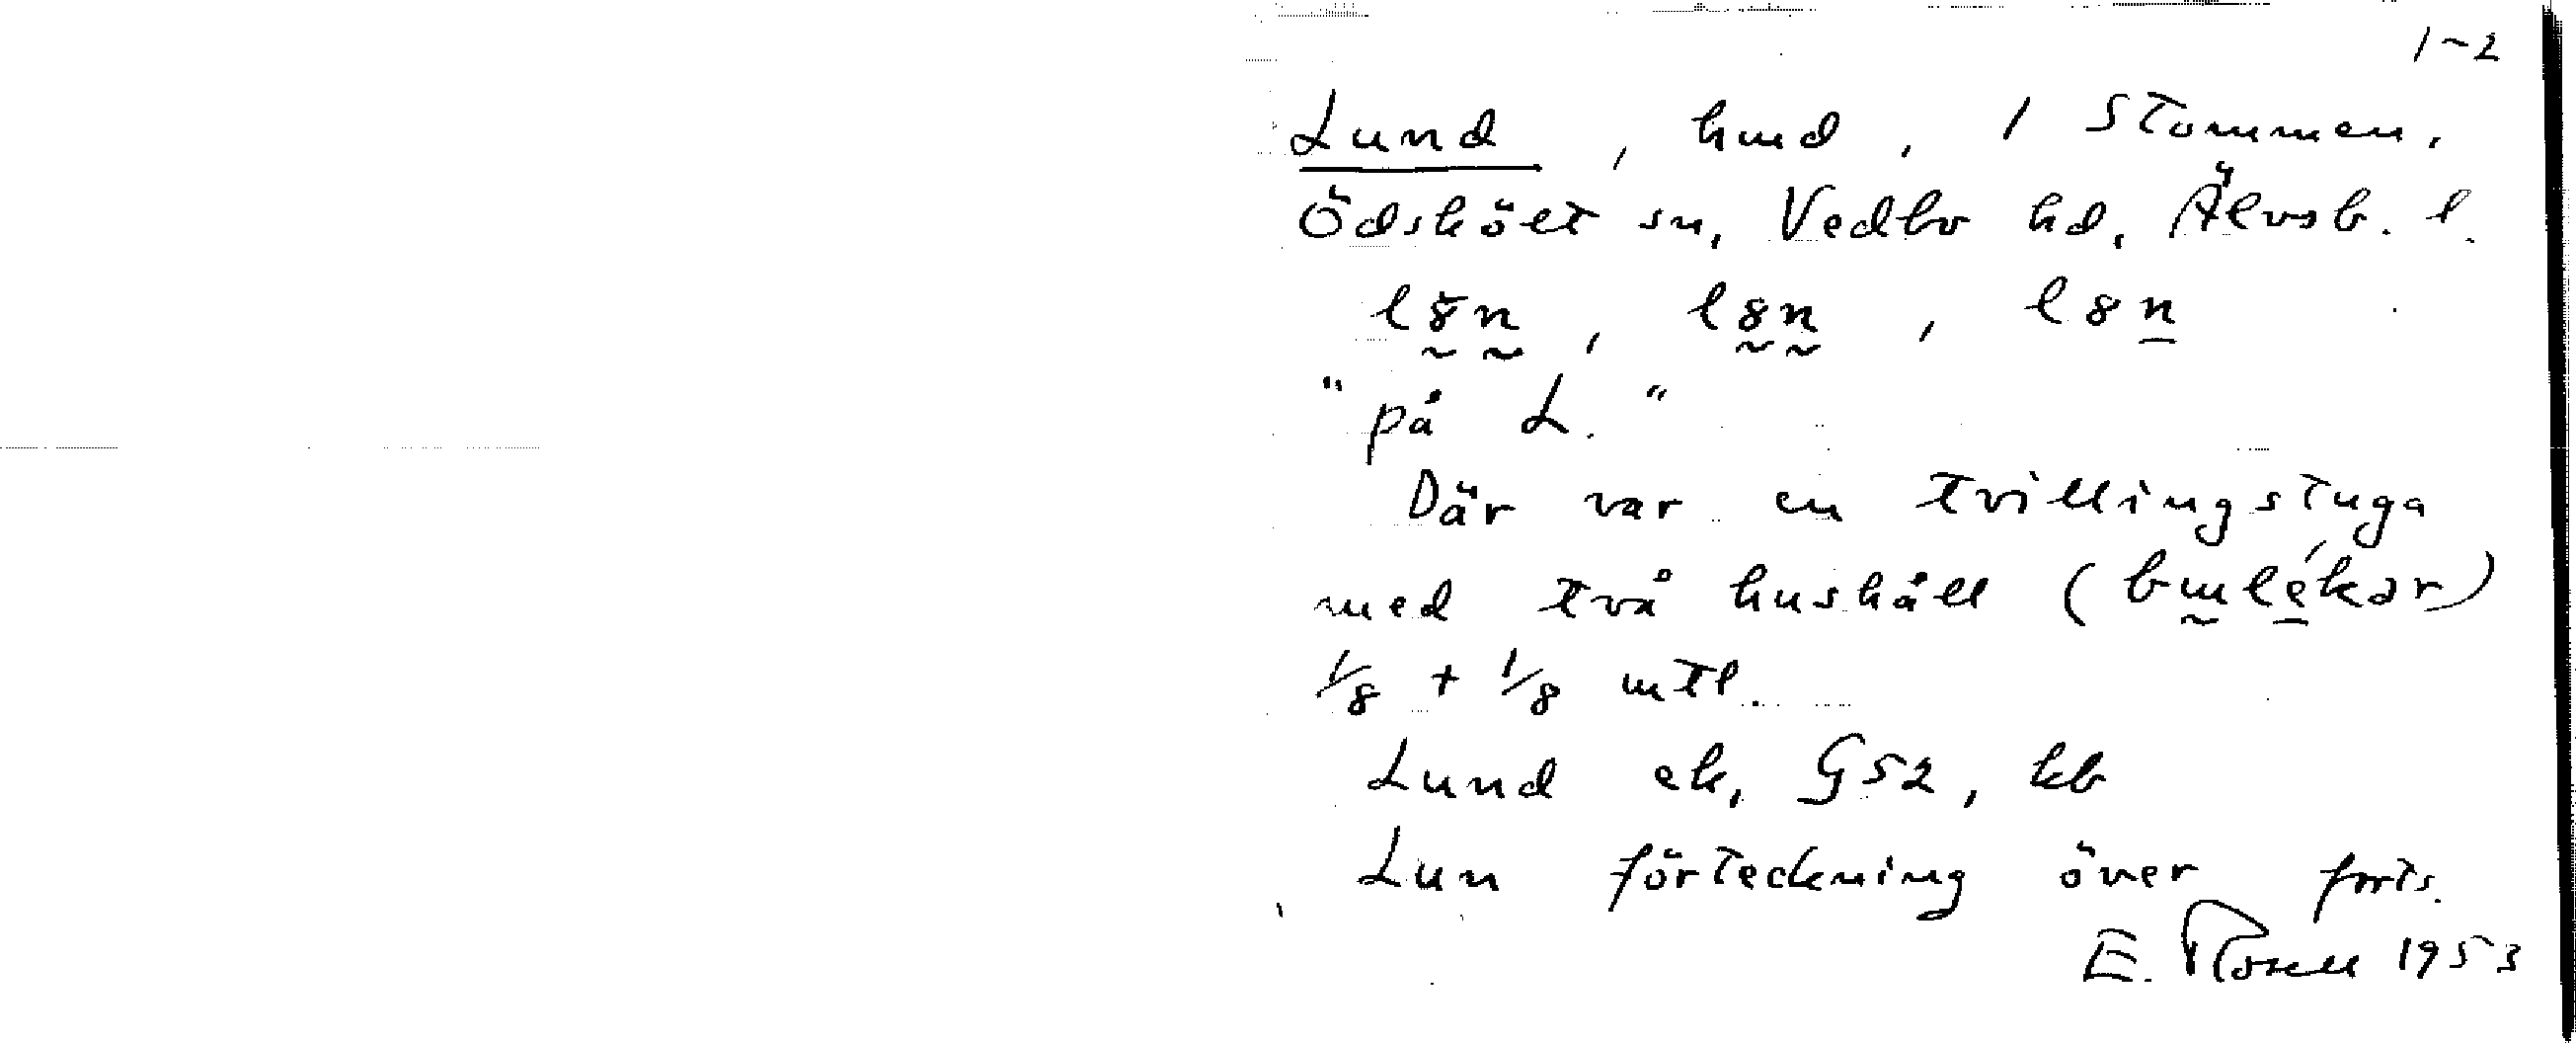 1-2
Lund, hmd, 1 Stommen,
Ödskölt sn, Vedbo hd, Älvsb. l.
"på L."
Där var en tvillingstuga
med två hushåll (bmlékar)
1/8 + 1/8 mtl.
Lund ek, G52, kb
Lun förteckning över forts.
E. Rosell 1953